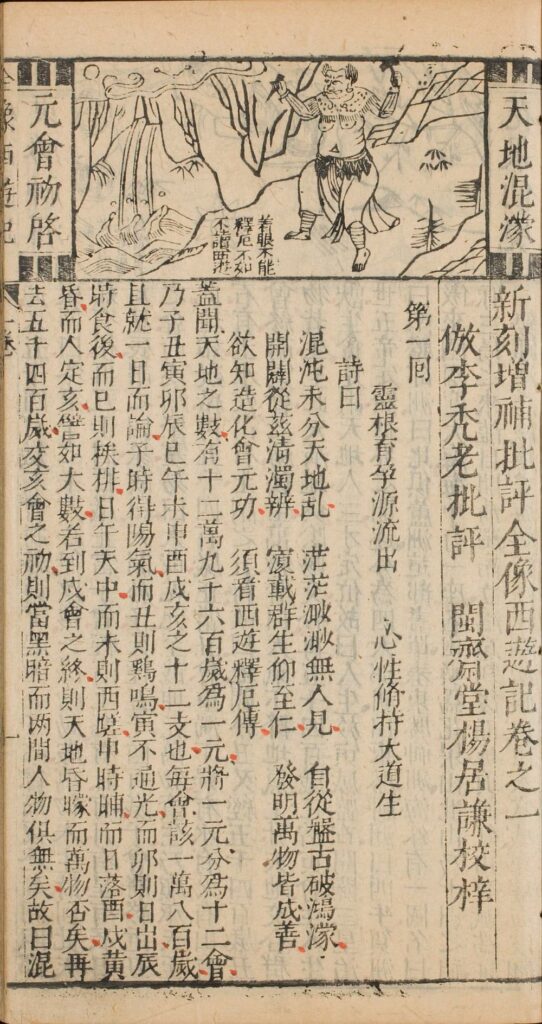 天地混濛
元會初啓
着眼不能
釋厄不如
不讀西遊
新刻增補批評全像西遊記卷之一
倣李禿老批評 閩齋堂楊居謙校梓
第一回
靈根育孕源流出 心性脩持大道生
詩曰
混沌未分天地乱 茫茫渺渺無人見 自從盤古破鴻濛
開闢從兹清濁辨 寔載群生仰至仁 發明萬物皆成善
欲知造化會元功 須看西遊釋厄傳
蓋聞天地之數有十二萬九千六百歲為一元將一元分為十二會
乃子丑寅卯辰巳午未申酉戌亥之十二支也每會該一萬八百歲
且就一日而論子時得陽氣而丑則鷄鳴寅不通光而卯則日出辰
時食後而巳則挨排日午天中而未則西蹉申時晡而日落酉戌黃
昏而人定亥譬如大數若到戌會之終則天地昏曚而萬物否矣再
去五千四百歲交亥會之初則當黑暗而两間人物俱無矣故曰混
全像西遊記
卷
一